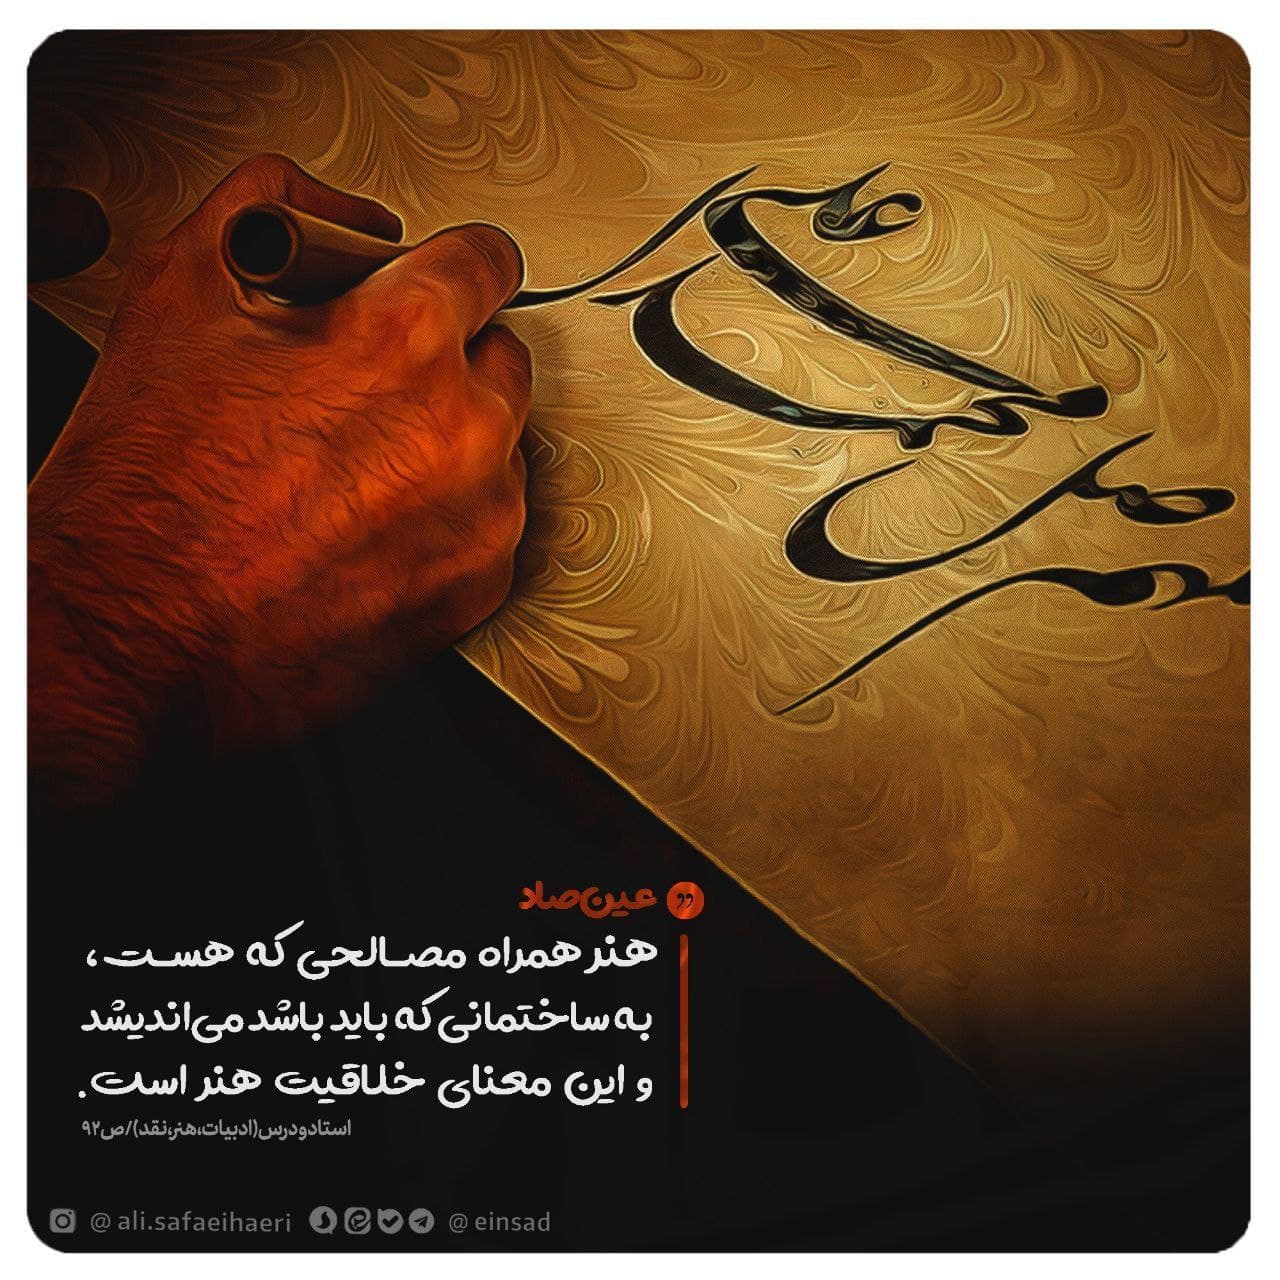 عین‌صاد
هنر همراه مصالحی که هست،
به ساختمانی که باید باشد می‌اندیشد
و این معنای خلاقیت هنر است.
استاد و درس(ادبیات،هنر،نقد)/ص۹۲
@ ali.safaeihaeri @ einsad